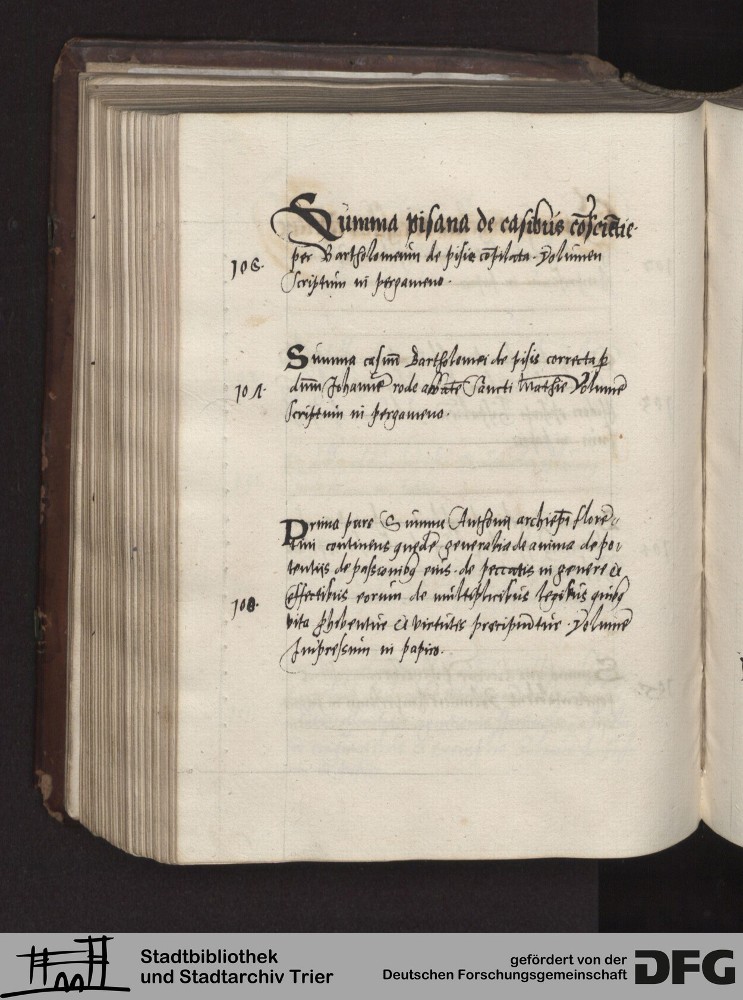 Summa pisana de casibus cōsciētie
per Bartholomeum de pisis cōpilata. Volumen
106.
Scriptum in pergameno.
Summa casuū Bartholomei de pisis correcta p
107.
dnm̄ Johannē rode abbatē Sancti Mathie Volumē
Scriptum in pergameno.
Prima pars Summe Anthonini archiepi florē
tini continens quedā generalia de anima de po
tentiis de passionibꝫ eius. de peccatis in genere et
108.
effectibus eorum de multiplicibus legibus quibꝫ
vitia phibentur et virtutes precipiuntur. Volumē
Impressum in papiro.
Stadtbibliothek
und Stadtarchiv Trier
gefördert von der
Deutschen Forschungsgemeinschaft
DFG